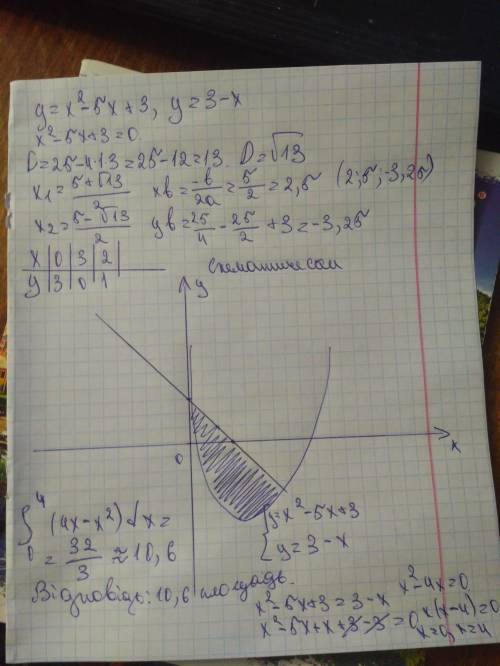 y=x²-5x+3, y=3-x
x²-5x+3=0
D=25-4·13=25-12=13. D=√13
x₁=(5+√13)/2 xв=-b/2a=5/2=2,5 (2;5;-3,25)
x₂=(5-√13)/2 yв=25/4-25/2+3=-3,25
x|0|3|2|
y|3|0|1|
Схематически
y
0
x
∫₀⁴(4x-x²)dx=
=32/3≈10,6
{y=x²-5x+3
{y=3-x
Відповідь: 10,6 площадь.
x²-5x+3=3-x
x²-5x+x+3-3=0
x²-4x=0
x(x-4)=0
x=0, x=4